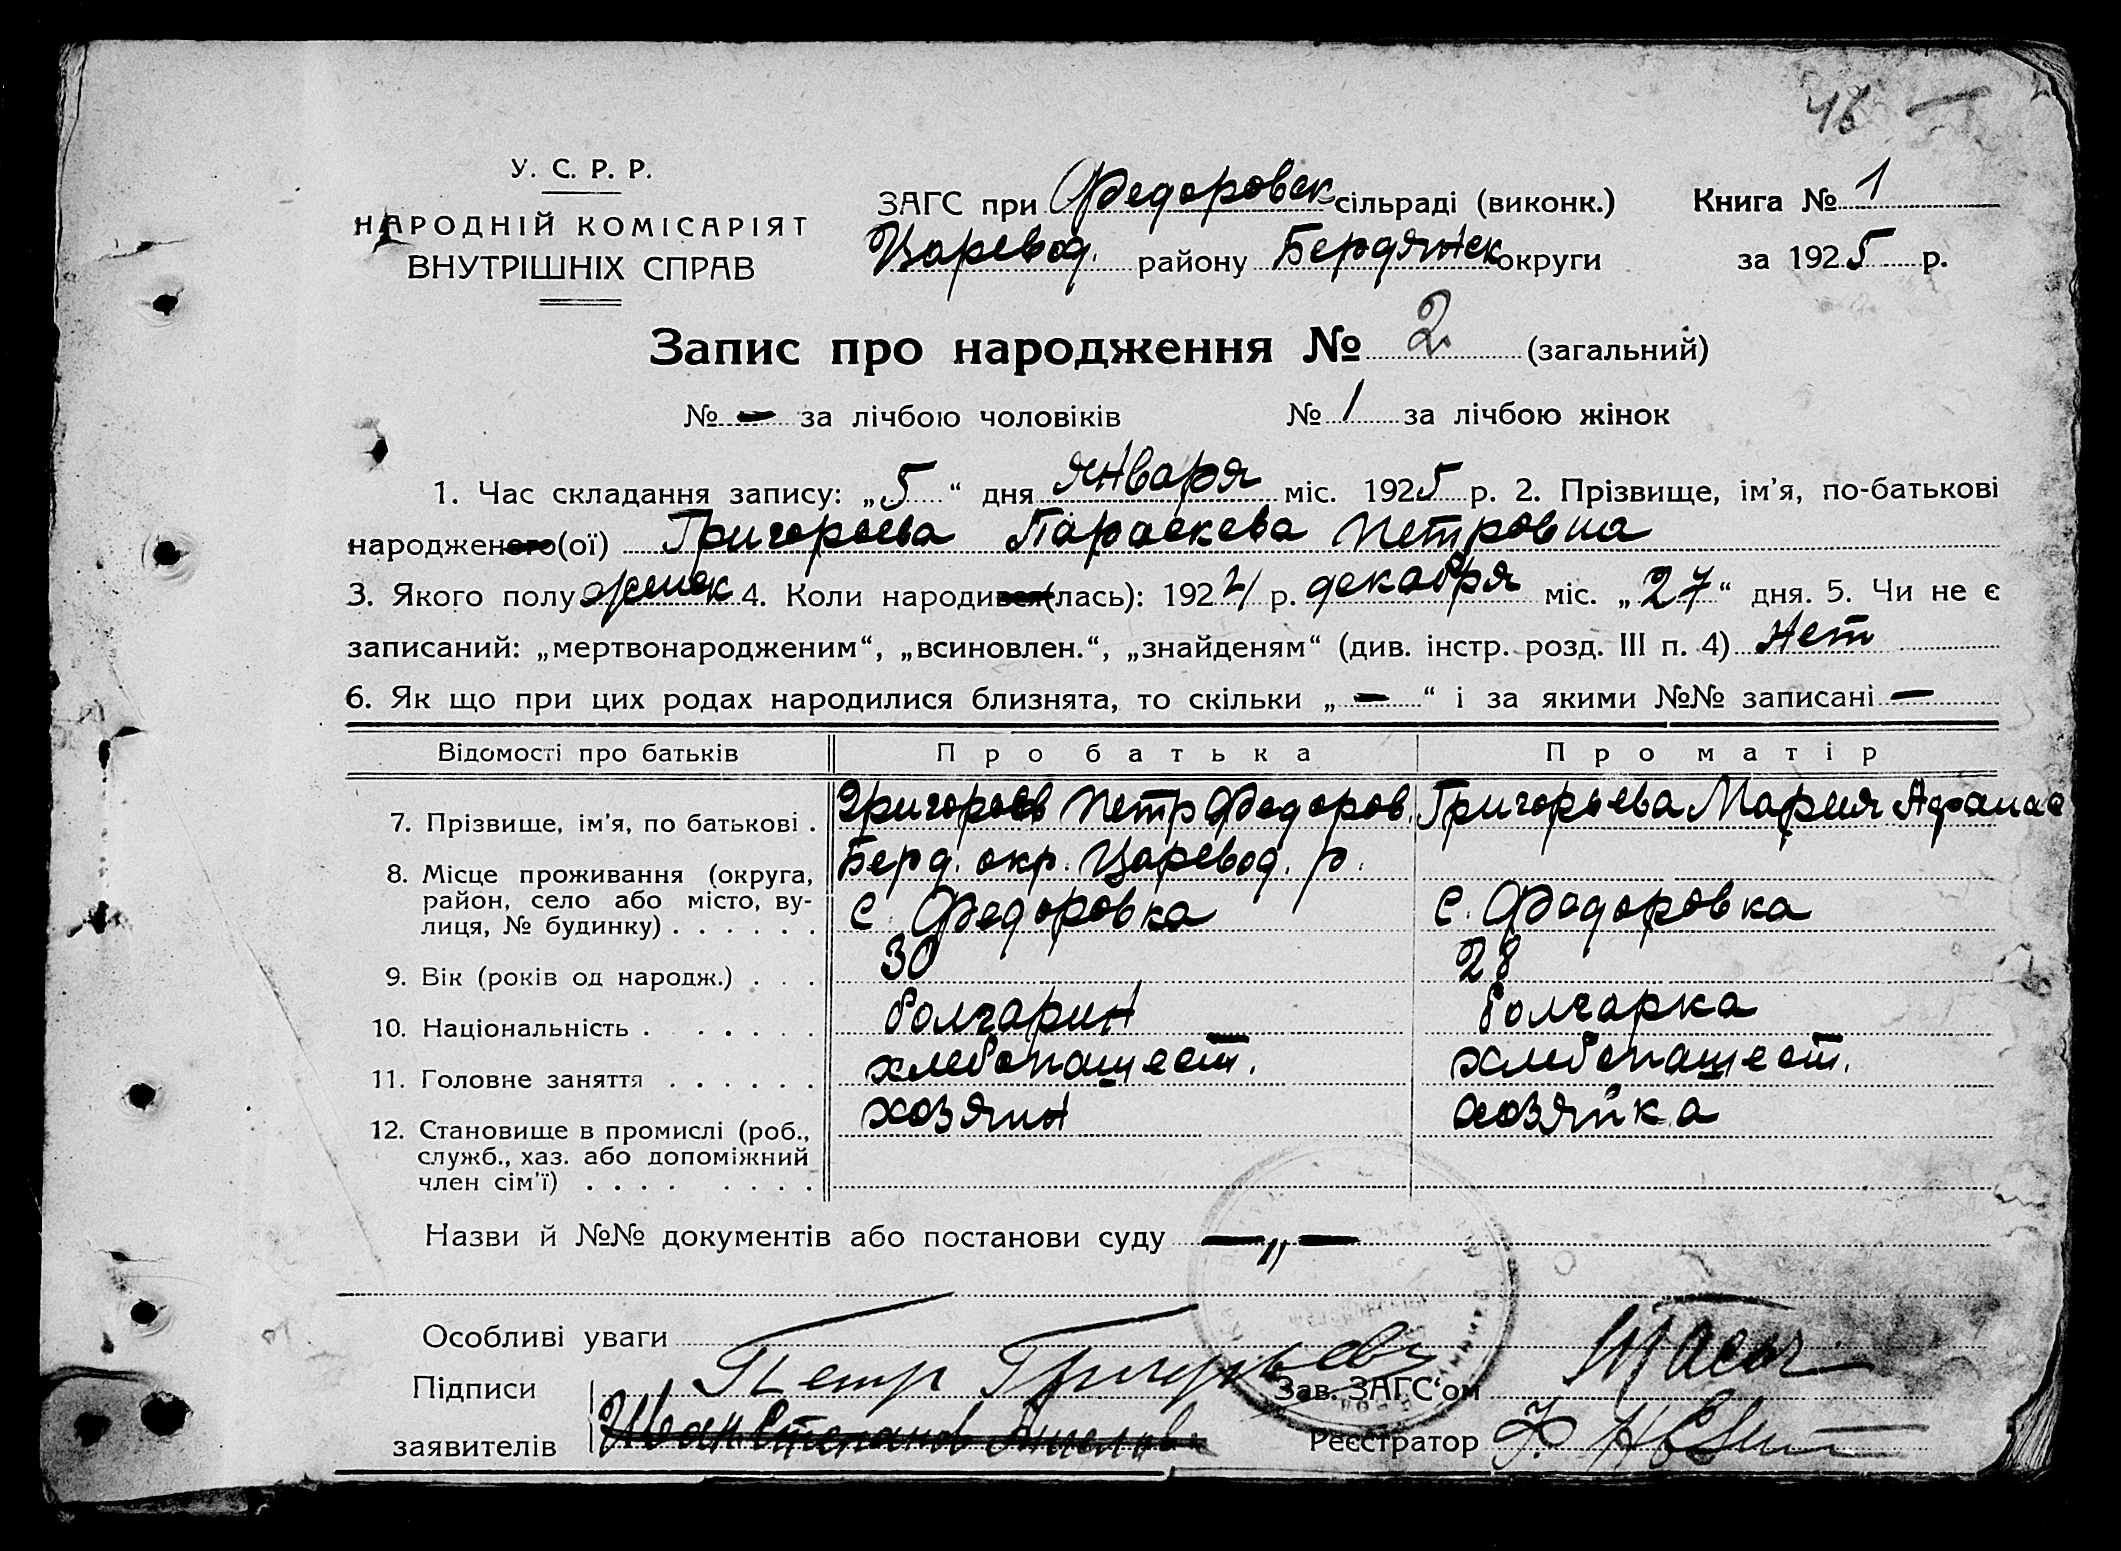 46
У. С. Р. Р.
НАРОДНІЙ КОМІСАРІЯТ
ВНУТРІШНІХ СПРАВ
ЗАГС при Федоровск сільраді (виконк.)
Царевод. району Бердянск округи
Книга № 1
за 1925 р.
Запис про народження № 2 (загальний)
№ — за лічбою чоловіків № 1 за лічбою жінок
1. Час складання запису: „5“ дня января міс. 1925 р. 2. Прізвище, ім’я, по-батькові
народженого(ої) Григорьева Параскева Петровна
3. Якого полу женск 4. Коли народився(лась): 1924 р. декабря міс. „27“ дня. 5. Чи не є
записаний: „мертвонародженим“, „всиновлен.“, „знайденям“ (див. інстр. розд. III п. 4) Нет
6. Як що при цих родах народилися близнята, то скільки „—“ і за якими №№ записані —
Відомості про батьків Про батька Про матір
7. Прізвище, ім’я, по батькові . Григорьев Петр Федоров. Григорьева Мария Афанас
8. Місце проживання (округа, Берд. окр. Царевод. р.
район, село або місто, ву-
лиця, № будинку) . . . . . . с. Федоровка с. Федоровка
9. Вік (років од народж.) . . . 30 28
10. Національність . . . . . . болгарин болгарка
11. Головне заняття . . . . . . хлебопашест. хлебопашест.
12. Становище в промислі (роб., хозяин хозяйка
служб., хаз. або допоміжний
член сім’ї) . . . . . . . .
Назви й №№ документів або постанови суду — „ —
Особливі уваги
Підписи Петр Григорьев Зав. ЗАГС‘ом
заявителів Иван Степанов Реєстратор